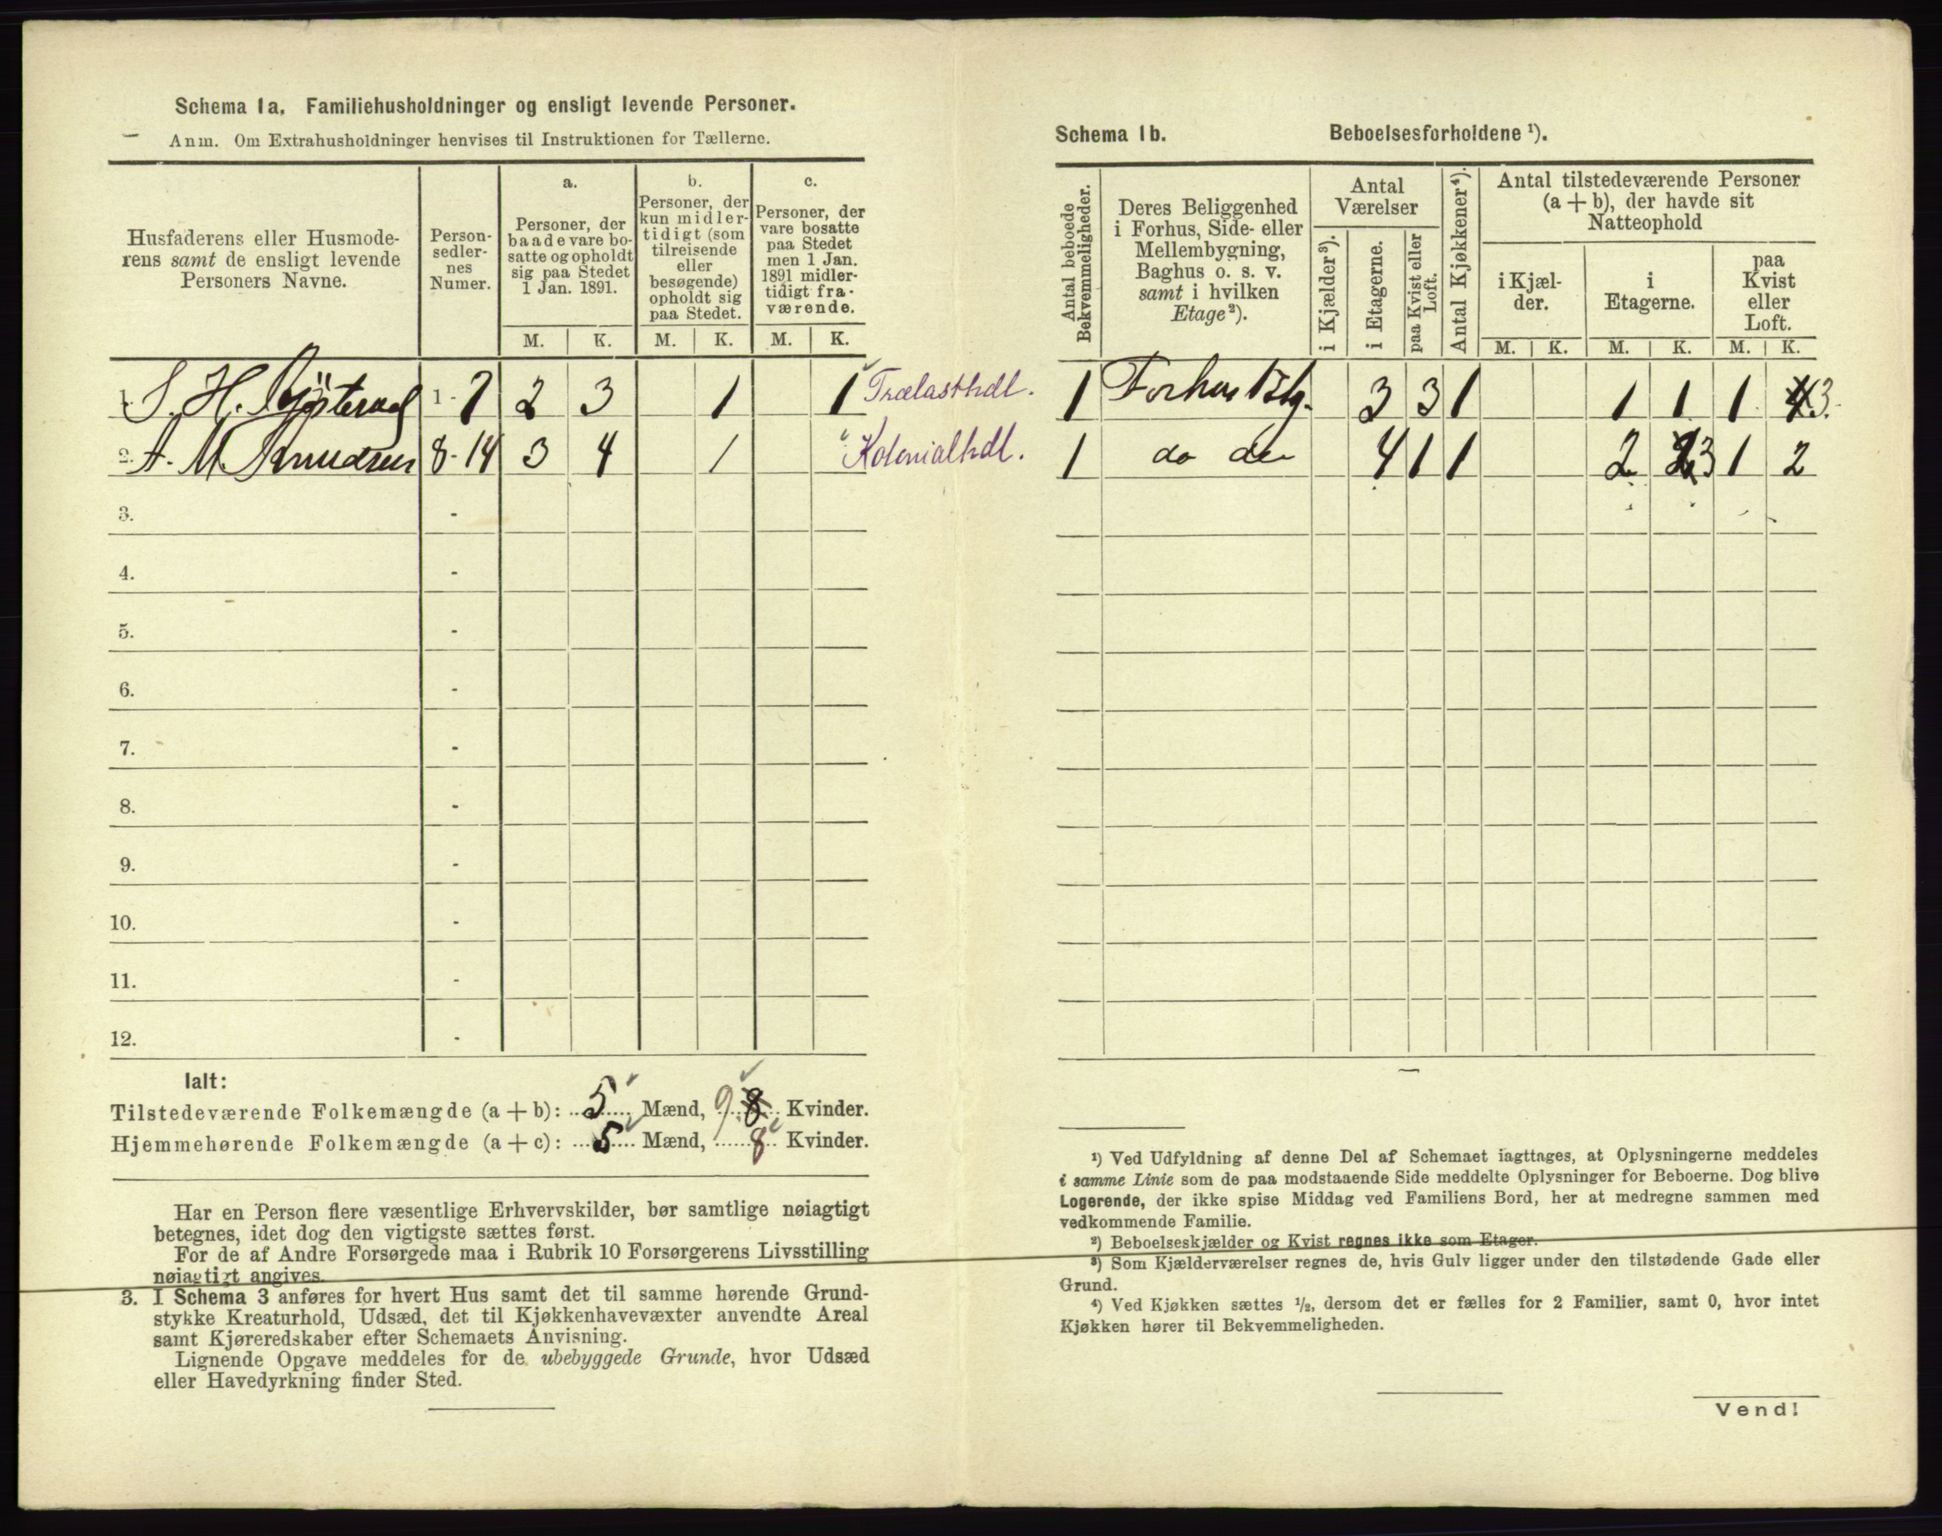 Schema 1a. Familiehusholdninger og ensligt levende Personer.
Anm. Om Extrahusholdninger henvises til Instruktionen for Tællerne.
Husfaderens eller Husmode-
rens samt de ensligt levende
Personers Navne.
Person-
sedler-
nes
Numer.
a.
Personer, der
baade vare bo-
satte og opholdt
sig paa Stedet
1 Jan. 1891.
b.
Personer, der
kun midler-
tidigt (som
tilreisende
eller
besøgende)
opholdt sig
paa Stedet.
c.
Personer, der
vare bosatte
paa Stedet
men 1 Jan.
1891 midler-
tidigt fra-
værende.
M. K. M. K. M. K.
1. S. H. 1 - 7 2 3 1 1 Trælasthdl.
2. A. M. Knudsen 8 - 14 3 4 1 Kolonialhdl.
3. -
4. -
5. -
6. -
7. -
8. -
9. -
10. -
11. -
12. -
Ialt:
Tilstedeværende Folkemængde (a + b): 5 Mænd, 9 8 Kvinder.
Hjemmehørende Folkemængde (a + c): 5 Mænd, 8 Kvinder.
Har en Person flere væsentlige Erhvervskilder, bør samtlige nøiagtigt
betegnes, idet dog den vigtigste sættes først.
For de af Andre Forsørgede maa i Rubrik 10 Forsørgerens Livsstilling
nøiagtigt angives.
3. I Schema 3 anføres for hvert Hus samt det til samme hørende Grund-
stykke Kreaturhold, Udsæd, det til Kjøkkenhavevæxter anvendte Areal
samt Kjøreredskaber efter Schemaets Anvisning.
Lignende Opgave meddeles for de ubebyggede Grunde, hvor Udsæd
eller Havedyrkning finder Sted.
Schema 1b. Beboelsesforholdene ¹).
Antal beboede
Bekvemmeligheder.
Deres Beliggenhed
i Forhus, Side- eller
Mellembygning,
Baghus o. s. v.
samt i hvilken
Etage²).
Antal
Værelser
i Kjælder³).
i Etagerne.
paa Kvist eller
Loft.
Antal Kjøkkener⁴).
Antal tilstedeværende Personer
(a + b), der havde sit
Natteophold
i Kjæl-
der.
i
Etagerne.
paa
Kvist
eller
Loft.
M. K. M. K. M. K.
1 Forhus 3 3 1 1 1 1 4 3.
1 do do 4 1 1 2 2 3 1 2
¹) Ved Udfyldning af denne Del af Schemaet iagttages, at Oplysningerne meddeles
i samme Linie som de paa modstaaende Side meddelte Oplysninger for Beboerne. Dog blive
Logerende, der ikke spise Middag ved Familiens Bord, her at medregne sammen med
vedkommende Familie.
²) Beboelseskjælder og Kvist regnes ikke som Etager.
³) Som Kjælderværelser regnes de, hvis Gulv ligger under den tilstødende Gade eller
Grund.
⁴) Ved Kjøkken sættes ½, dersom det er fælles for 2 Familier, samt 0, hvor intet
Kjøkken hører til Bekvemmeligheden.
Vend!